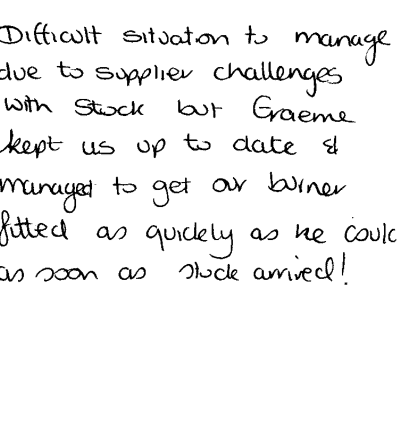 Difficult situation to manage
due to supplier challenges
with stock but Graeme
kept us up to date &
managed to get our burner
fitted as quickely as he could
as soon as stock arrived!